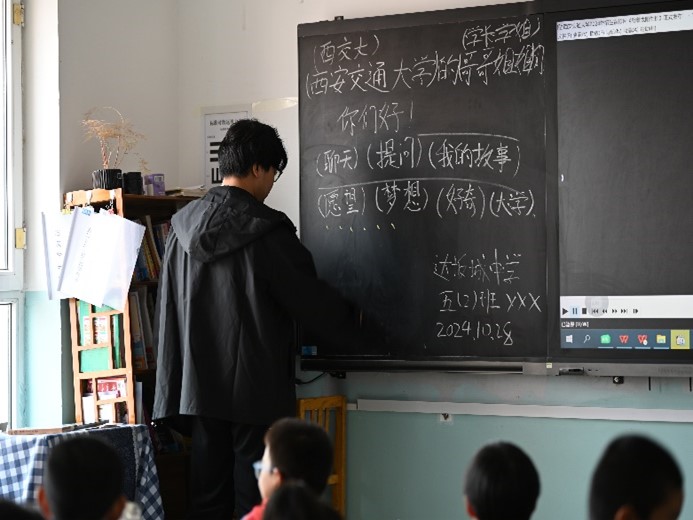 (西交大) (学长学姐)
(西安交通大学的哥哥姐姐们
你们好!
(聊天)(提问)(我的故事)
(愿望)(梦想)(好奇)(大学)
达坂城中学
五(2)班 XXX
2024.10.28